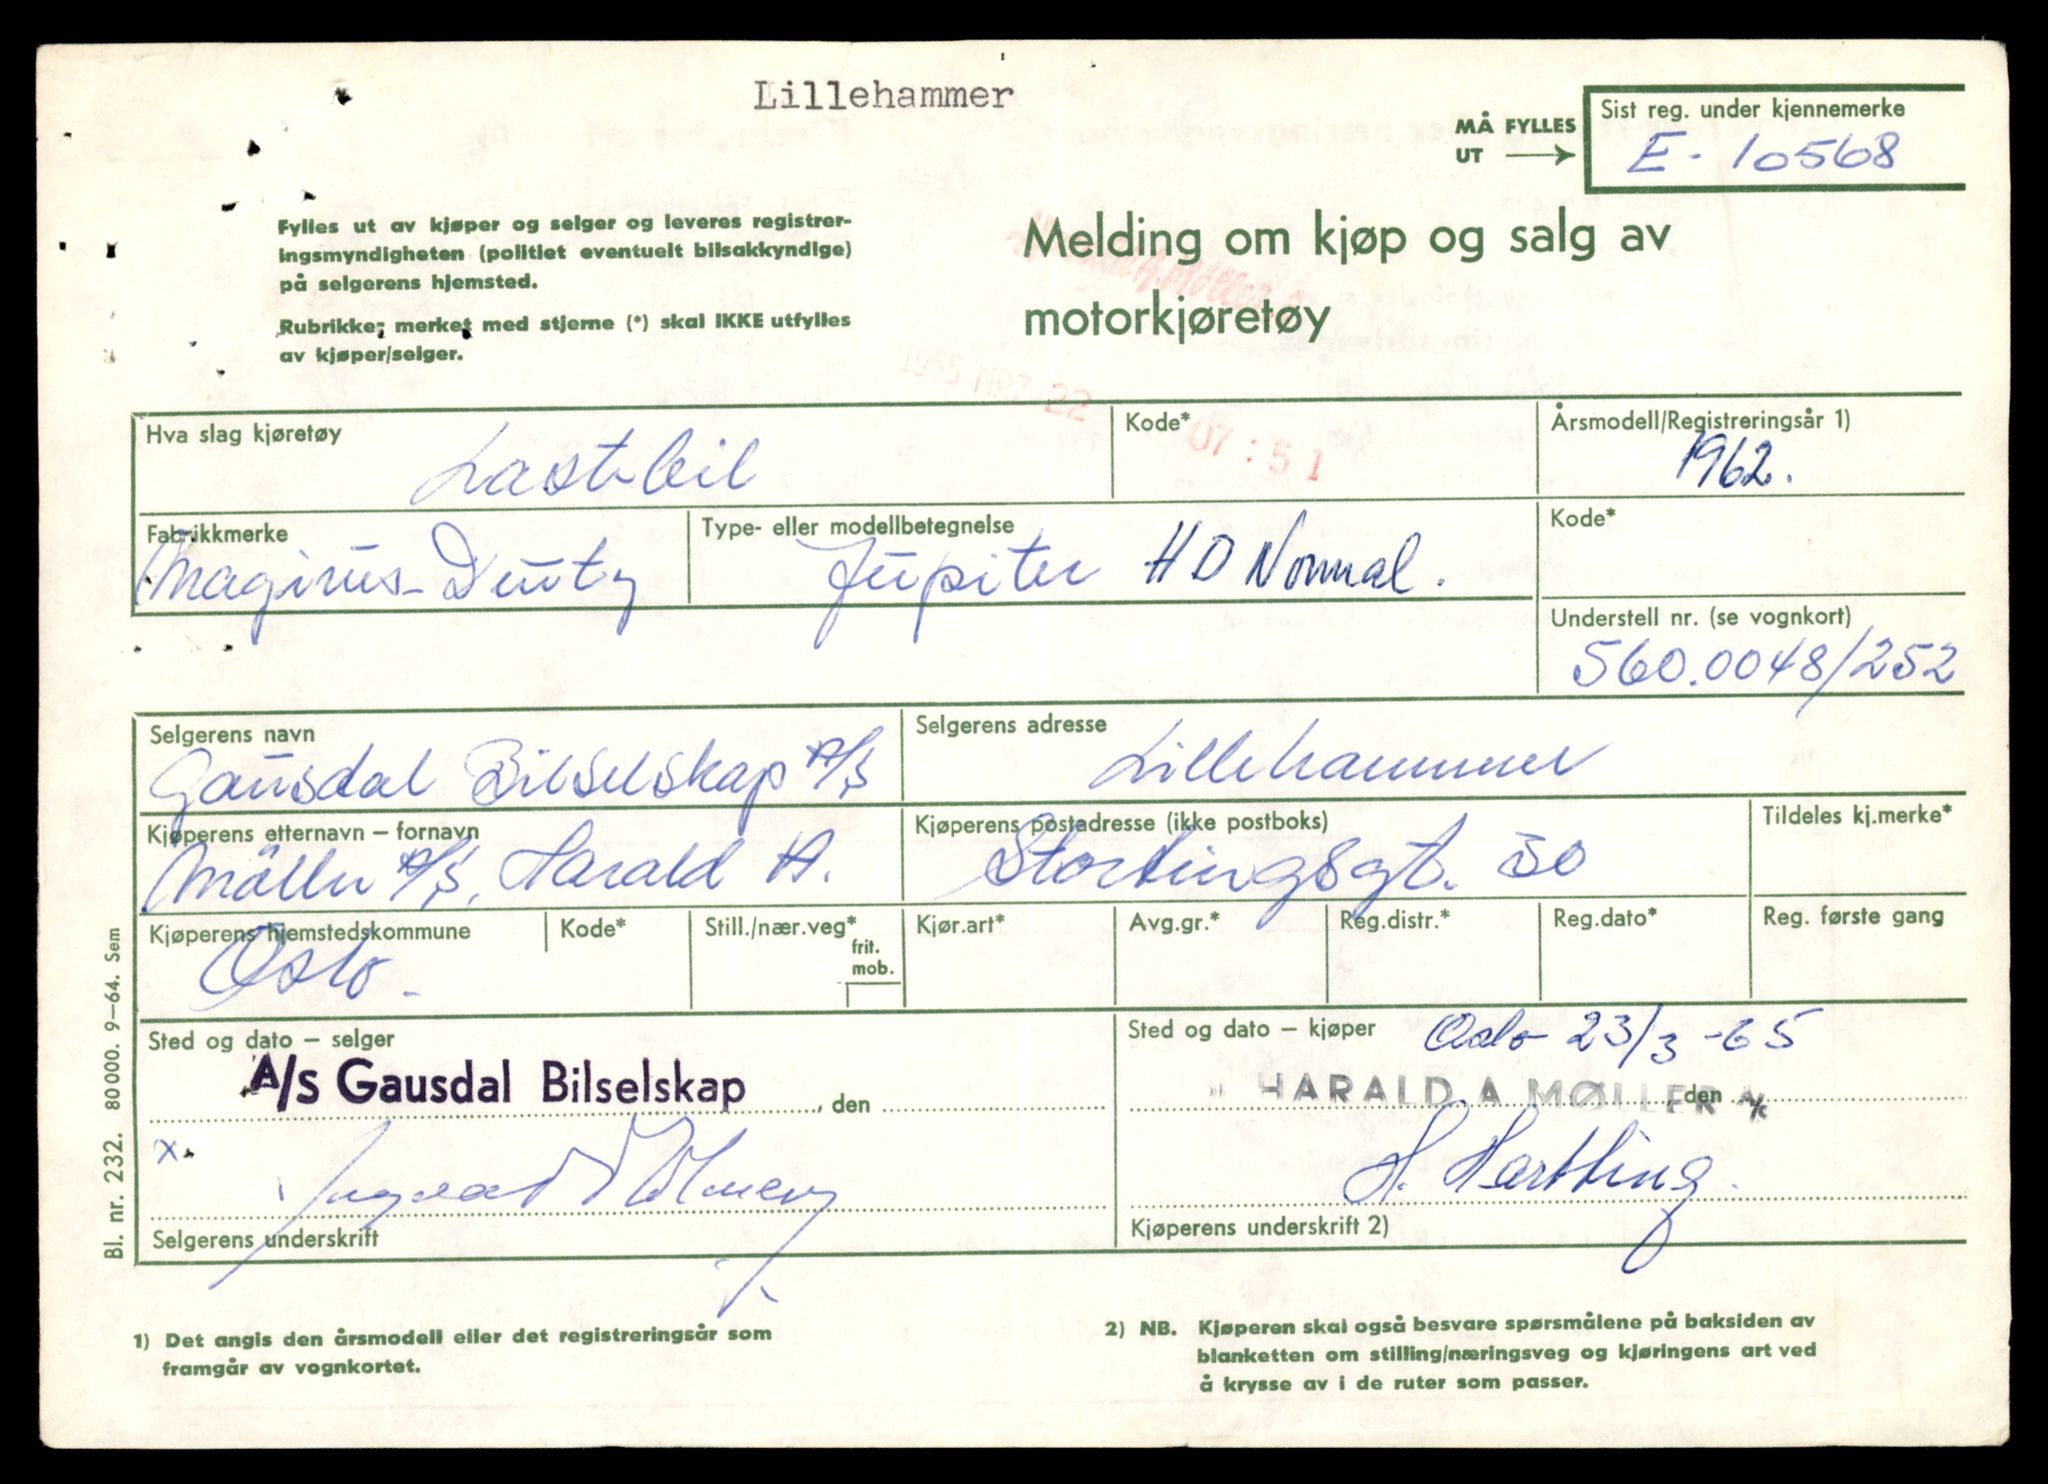 Lillehammer
MÅ FYLLES
UT
Sist reg. under kjennemerke
E - 10568
Fylles ut av kjøper og selger og leveres registrer-
ingsmyndigheten (politiet eventuelt bilsakkyndige)
på selgerens hjemsted.
Rubrikker merket med stjerne (*) skal IKKE utfylles
av kjøper/selger.
Melding om kjøp og salg av
motorkjøretøy
22
07:51
Hva slag kjøretøy
Lastebil
Kode*
Årsmodell/Registreringsår 1)
1962.
Fabrikkmerke
Magirus-Deutz
Type- eller modellbetegnelse
Jupiter HD Normal.
Kode*
Understell nr. (se vognkort)
560.0048/252
Selgerens navn
Gausdal Bilselskap A/S
Selgerens adresse
Lillehammer
Kjøperens etternavn – fornavn
Möller A/S, Harald A.
Kjøperens postadresse (ikke postboks)
Stortingsgt. 30
Tildeles kj.merke*
Kjøperens hjemstedskommune
Oslo.
Kode*
Still./nær.veg*
frit.
mob.
Kjør.art*
Avg.gr.*
Reg.distr.*
Reg.dato*
Reg. første gang
Sted og dato – selger
A/S Gausdal Bilselskap, den
x.
Selgerens underskrift
Sted og dato – kjøper Oslo 23/3-65
HARALD A MØLLER A/S, den
H. Hartling.
Kjøperens underskrift 2)
Bl. nr. 232. 80 000. 9–64. Sem
1) Det angis den årsmodell eller det registreringsår som
framgår av vognkortet.
2) NB. Kjøperen skal også besvare spørsmålene på baksiden av
blanketten om stilling/næringsveg og kjøringens art ved
å krysse av i de ruter som passer.